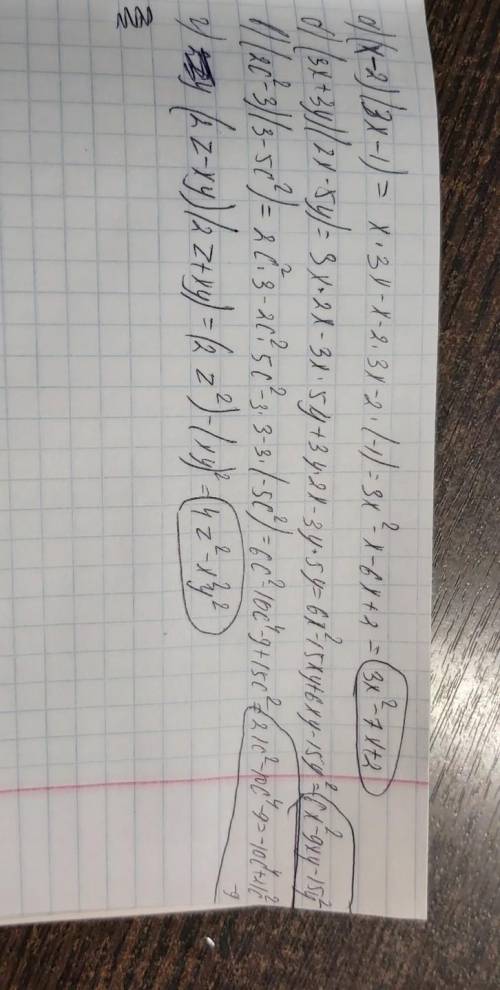 а) (x-2)(3x-1) = x·3x-x-2·3x-2·(-1)=3x²-x-6x+2 = 3x²-7x+2
б) (3x+3y)(2x-5y)= 3x·2x-3x·5y+3y·2x-3y·5y=6x²-15xy+6xy-15y²=6x²-9xy-15y²
в) (2c²-3)(3-5c²)=2c²·3-2c²·5c²-3·3-3·(-5c²)=6c²-10c⁴-9+15c²=21c²-10c⁴-9=-10c⁴+21c²
-9
г) (2z-xy)(2z+xy)=(2z²)-(xy)²=4z²-x²y²